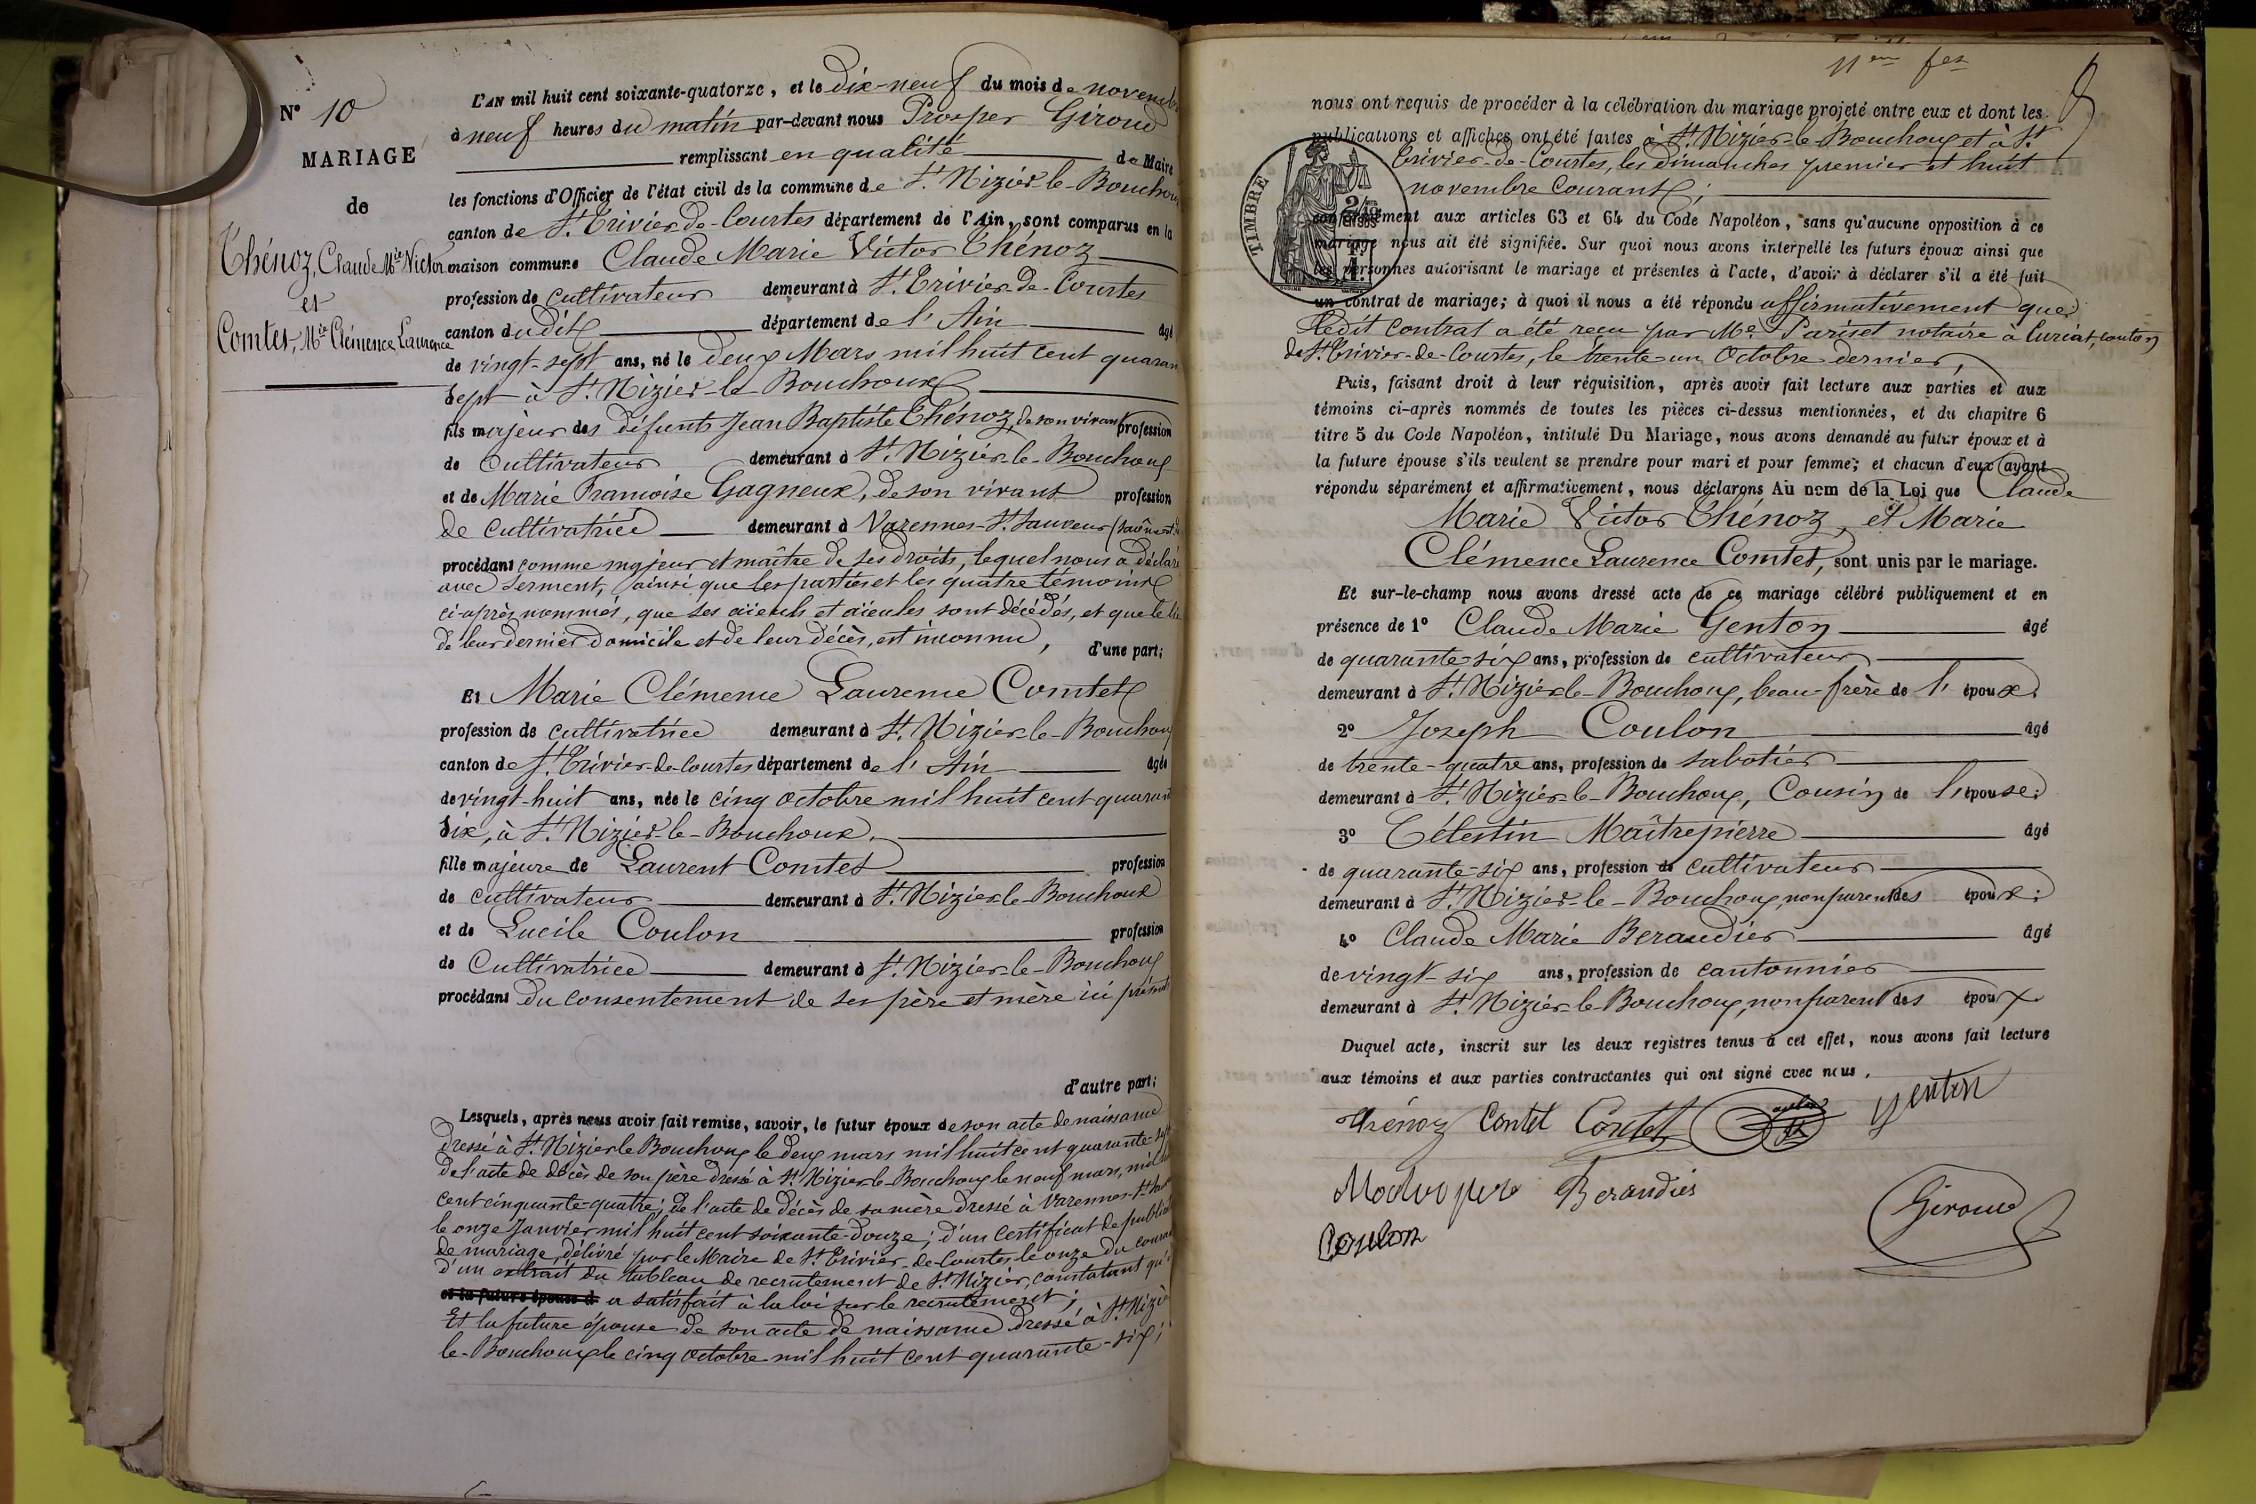 N° 10
MARIAGE
de
Thénoz, Claude Mie Victor
et
Comtet, Mie Clémence Laurence
L'AN mil huit cent soixante-quatorze, et le dix-neuf du mois de novembre
à neuf heures du matin par-devant nous Prosper Giroud
remplissant en qualité de Maire
les fonctions d'Officier de l'état civil de la commune de St. Nizier-le-Bouchoux
canton de St. Trivier-de-Courtes département de l'Ain, sont comparus en la
maison commune Claude Marie Victor Thénoz
profession de cultivateur demeurant à St. Trivier-de-Courtes
canton dudit département de l'Ain âgé
de vingt-sept ans, né le deux Mars mil huit cent quaran
sept à St. Nizier-le-Bouchoux
fils majeur des défunts Jean Baptiste Thénoz, de son vivant profession
de cultivateur demeurant à St. Nizier-le-Bouchoux
et de Marie Françoise Gagneux, de son vivant profession
de cultivatrice demeurant à Varennes-St. Sauveur
procédant comme majeur et maître de ses droits, lequel nous a déclaré
avec serment, ainsi que les parties et les quatre témoins
ci-après nommés, que ses aïeuls et aïeules sont décédés, et que le lie
de leur dernier domicile et de leur décès, est inconnu, d'une part;
Et Marie Clémence Laurence Comtet
profession de cultivatrice demeurant à St. Nizier-le-Bouchoux
canton de St. Trivier-de-Courtes département de l'Ain âgée
de vingt-huit ans, née le cinq octobre mil huit cent quarant
six, à St. Nizier-le-Bouchoux.
fille majeure de Laurent Comtet profession
de cultivateur demeurant à St. Nizier-le-Bouchoux
et de Lucile Coulon profession
de Cultivatrice demeurant à St. Nizier-le-Bouchoux
procédant du consentement de ses père et mère ici présents
d'autre part;
Lesquels, après nous avoir fait remise, savoir, le futur époux de son acte de naissance
dressé à St. Nizier-le-Bouchoux le deux mars mil huit cent quarante-sept
de l'acte de décès de son père dressé à St. Nizier-le-Bouchoux le neuf mars, mil
cent cinquante-quatre; de l'acte de décès de sa mère dressé à Varennes-St
le onze Janvier mil huit cent soixante-douze; d'un certificat de publicat
de mariage, délivré par le Maire de St. Trivier-de-Courtes, le onze du coura
d'un extrait du tableau de recrutement de St. Nizier, constatant qu'
et la future épouse d a satisfait à la loi sur le recrutement;
Et la future épouse de son acte de naissance dressé à St. Nizie
le-Bouchoux le cinq octobre mil huit cent quarante-six;
nous ont requis de procéder à la célébration du mariage projeté entre eux et dont les
publications et affiches ont été faites à St. Nizier-le-Bouchoux et à St.
Trivier-de-Courtes, les dimanches premier et huit
novembre courant;
TIMBRE
conformément aux articles 63 et 64 du Code Napoléon, sans qu'aucune opposition à ce
mariage nous ait été signifiée. Sur quoi nous avons interpellé les futurs époux ainsi que
les personnes autorisant le mariage et présentes à l'acte, d'avoir à déclarer s'il a été fait
un contrat de mariage; à quoi il nous a été répondu affirmativement que
ledit contrat a été reçu par Me. Pariset notaire à Curciat, canton
de St. Trivier-de-Courtes, le trente-un Octobre dernier,
Puis, faisant droit à leur réquisition, après avoir fait lecture aux parties et aux
témoins ci-après nommés de toutes les pièces ci-dessus mentionnées, et du chapitre 6
titre 5 du Code Napoléon, intitulé Du Mariage, nous avons demandé au futur époux et à
la future épouse s'ils veulent se prendre pour mari et pour femme; et chacun d'eux ayant
répondu séparément et affirmativement, nous déclarons Au nom de la Loi que Claude
Marie Victor Thénoz, et Marie
Clémence Laurence Comtet, sont unis par le mariage.
Et sur-le-champ nous avons dressé acte de ce mariage célébré publiquement et en
présence de 1° Claude Marie Genton âgé
de quarante-six ans, profession de cultivateur
demeurant à St. Nizier-le-Bouchoux, beau-frère de l'époux.
2° Joseph Coulon âgé
de trente-quatre ans, profession de sabotier
demeurant à St. Nizier-le-Bouchoux, Cousin de l'épouse;
3° Célestin Maîtrepierre âgé
de quarante-six ans, profession de cultivateur
demeurant à St. Nizier-le-Bouchoux, non parent des époux;
4° Claude Marie Beraudier âgé
de vingt-six ans, profession de cantonnier
demeurant à St. Nizier-le-Bouchoux, non parent des époux
Duquel acte, inscrit sur les deux registres tenus à cet effet, nous avons fait lecture
aux témoins et aux parties contractantes qui ont signé avec nous.
Thénoz Contet Contet Genton
Beraudier
Giroud
Coulon